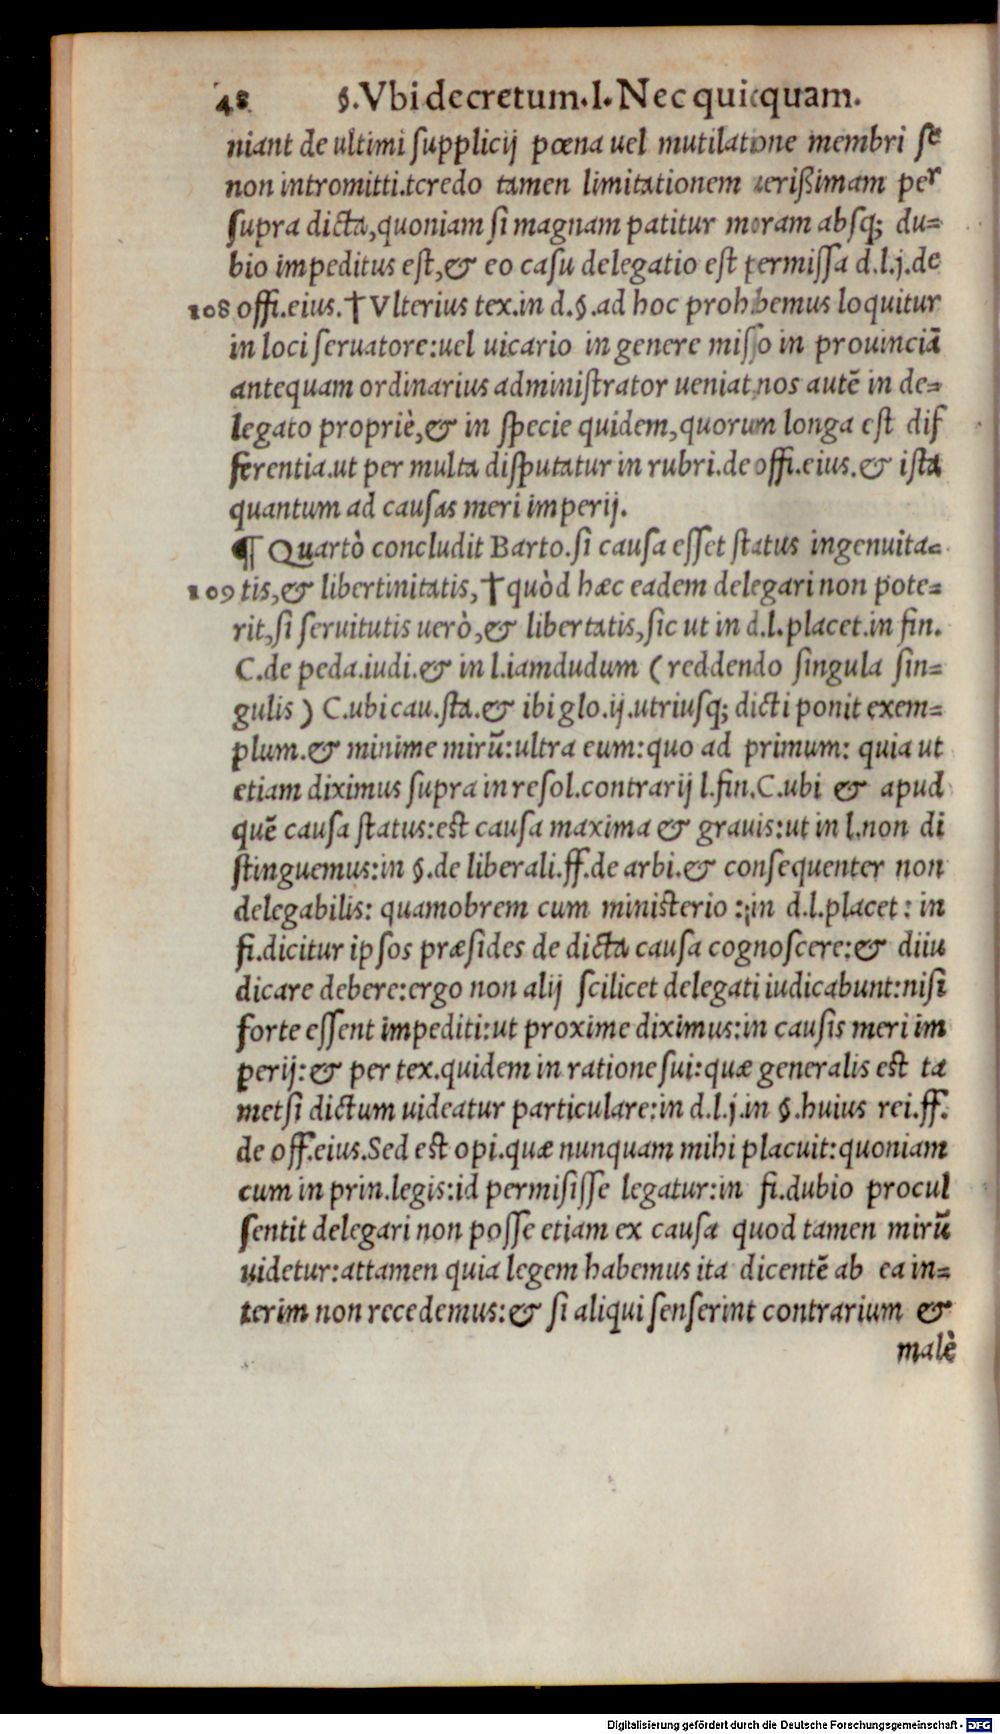 48 §.Vbi decretum.I.Nec quicquam.
niant de ultimi supplicij pœna uel mutilatione membri se
non intromitti.tcredo tamen limitationem uerißimam per
supra dicta,quoniam si magnam patitur moram absq; du=
bio impeditus est,& eo casu delegatio est permissa d.l.j.de
108 offi.eius.†Vlterius tex.in d.§.ad hoc prohibemus loquitur
in loci seruatore:uel uicario in genere misso in prouinciā
antequam ordinarius administrator ueniat,nos autē in de=
legato propriè,& in specie quidem,quorum longa est dif
ferentia.ut per multa disputatur in rubri.de offi.eius.& ista
quantum ad causas meri imperij.
¶ Quartò concludit Barto.si causa esset status ingenuita=
109 tis,& libertinitatis,†quòd hæc eadem delegari non pote=
rit,si seruitutis uerò,& libertatis,sic ut in d.l.placet.in fin.
C.de peda.iudi.& in l.iamdudum (reddendo singula sin=
gulis) C.ubi cau.sta.& ibi glo.ij.utriusq; dicti ponit exem=
plum.& minime mirū:ultra eum:quo ad primum: quia ut
etiam diximus supra in resol.contrarij l.fin.C.ubi & apud
quē causa status:est causa maxima & grauis:ut in l.non di
stinguemus:in §.de liberali.ff.de arbi.& consequenter non
delegabilis: quamobrem cum ministerio :in d.l.placet: in
fi.dicitur ipsos præsides de dicta causa cognoscere:& diiu
dicare debere:ergo non alij scilicet delegati iudicabunt:nisi
forte essent impediti:ut proxime diximus:in causis meri im
perij:& per tex.quidem in ratione sui:quæ generalis est ta
metsi dictum uideatur particulare:in d.l.j.in §.huius rei.ff.
de off.eius.Sed est opi.quæ nunquam mihi placuit:quoniam
cum in prin.legis:id permisisse legatur:in fi.dubio procul
sentit delegari non posse etiam ex causa quod tamen mirū
uidetur:attamen quia legem habemus ita dicentē ab ea in=
terim non recedemus:& si aliqui senserint contrarium &
malè
Digitalisierung gefördert durch die Deutsche Forschungsgemeinschaft - DFG